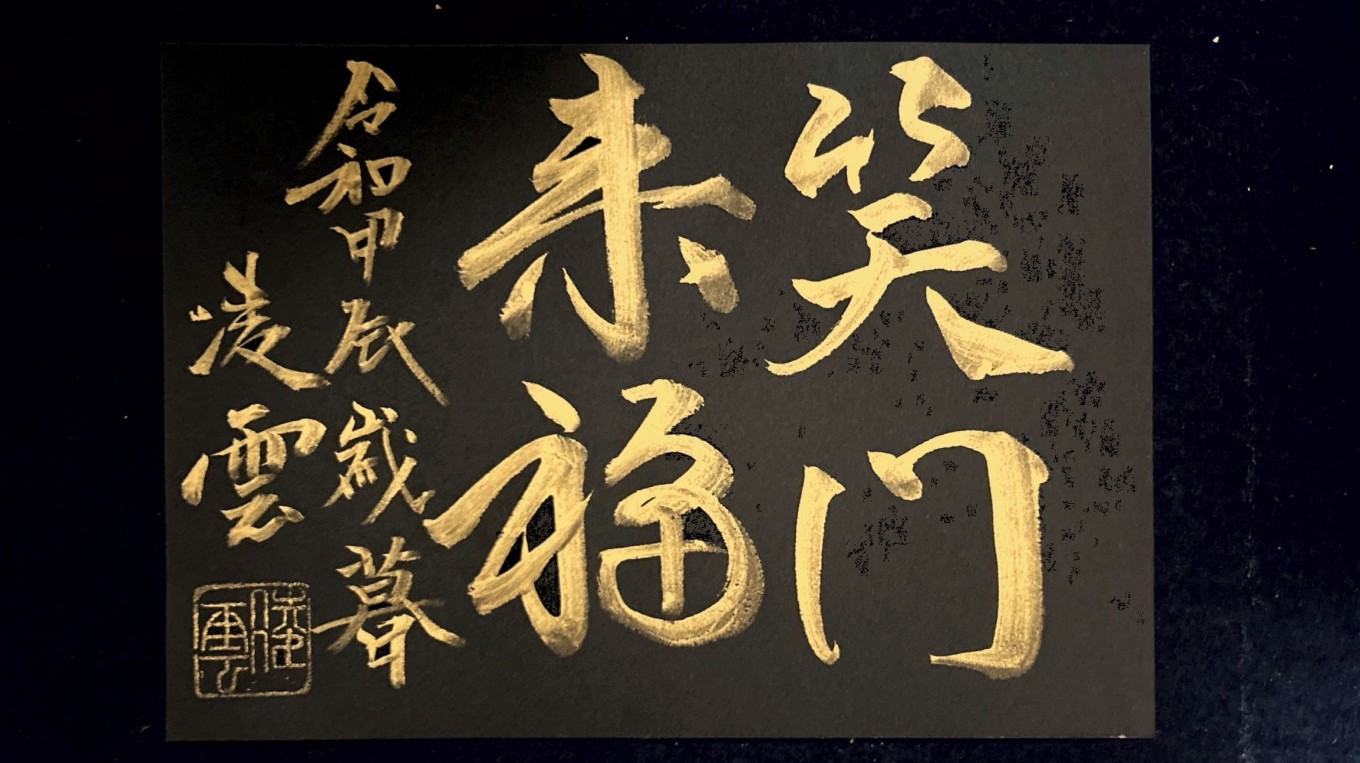 笑门
来福
令和甲辰歳暮
凌雲
凌雲